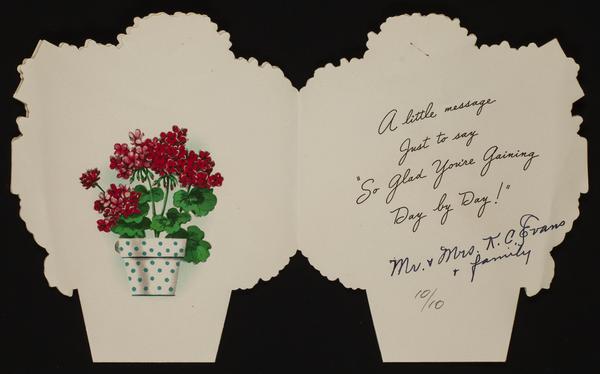 A little message
Just to say
"So Glad You're Gaining
Day by Day!"
Mr. & Mrs. K. C. Evans
& family
10/10